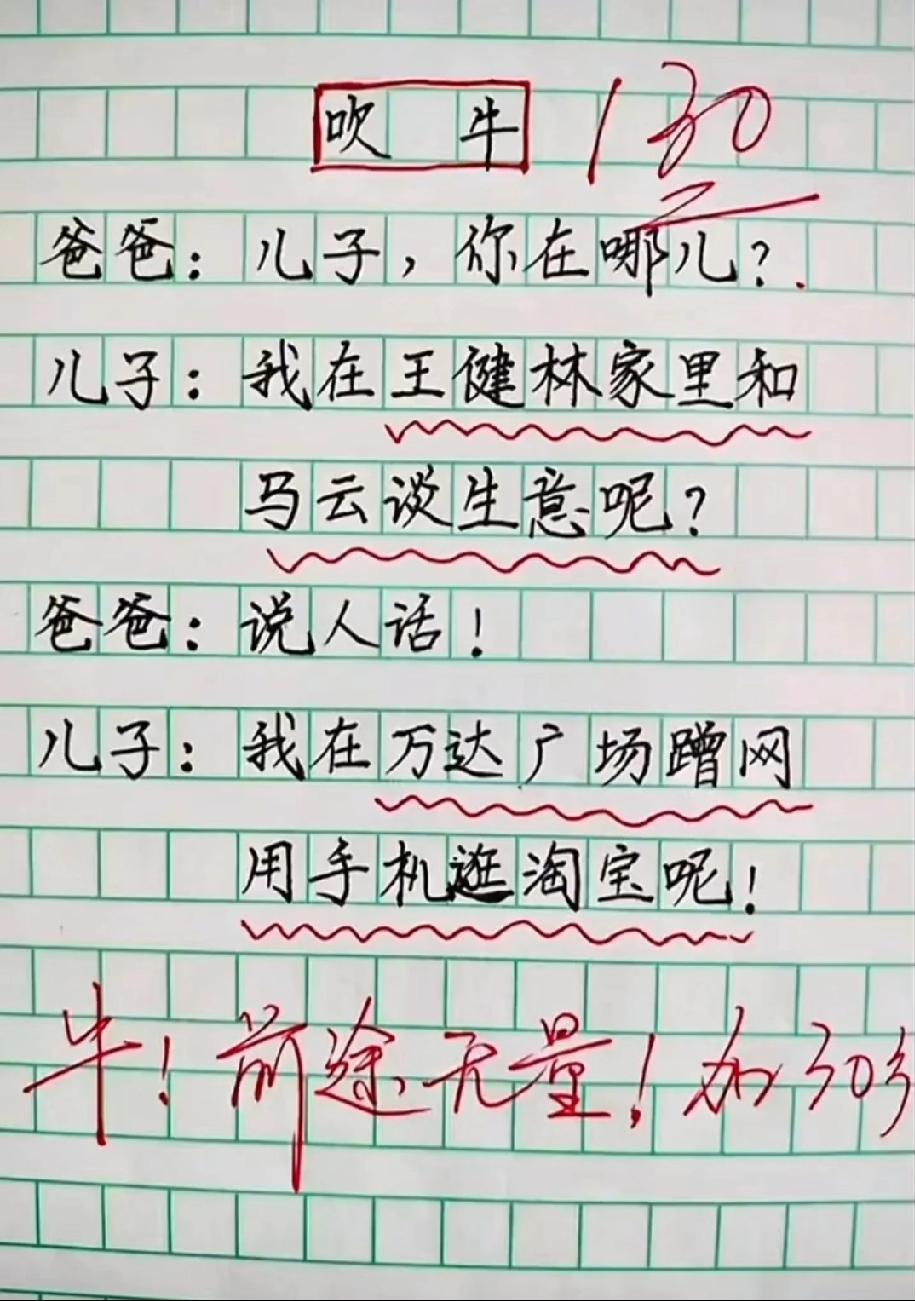 吹牛 130
爸爸：儿子，你在哪儿？
儿子：我在王健林家里和
马云谈生意呢？
爸爸：说人话！
儿子：我在万达广场蹭网
用手机逛淘宝呢！
牛！前途无量！加30分